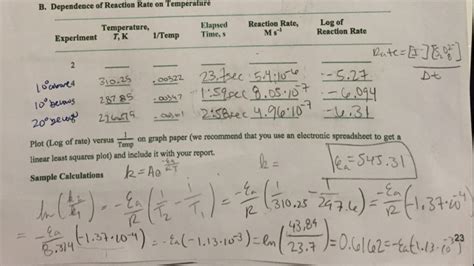 B. Dependence of Reaction Rate on Temperature
Experiment Temperature, T, K 1/Temp Elapsed Time, s Reaction Rate, M s⁻¹ Log of Reaction Rate
2
10° above 310.25 .00322 23.7sec 5.4·10⁻⁶ -5.27
10° below 287.85 .00347 1:59sec 8.05·10⁻⁷ -6.094
20° below 2:58sec 4.96·10⁻⁷ -6.31
Rate=
Δt
Plot (Log of rate) versus 1/Temp on graph paper (we recommend that you use an electronic spreadsheet to get a
linear least squares plot) and include it with your report.
Sample Calculations k=Ae^(-Ea/RT) k= Ea=545.31
ln(k₂/k₁)=-Ea/R(1/T₂-1/T₁)=-Ea/R(1/310.25-1/297.6)=-Ea/R(-1.37·10⁻⁴)
-Ea/8.314(-1.37·10⁻⁴)=-Ea(-1.13·10⁻³)=ln(43.89/23.7)=0.6162=-Ea(-1.13·10⁻³)
23